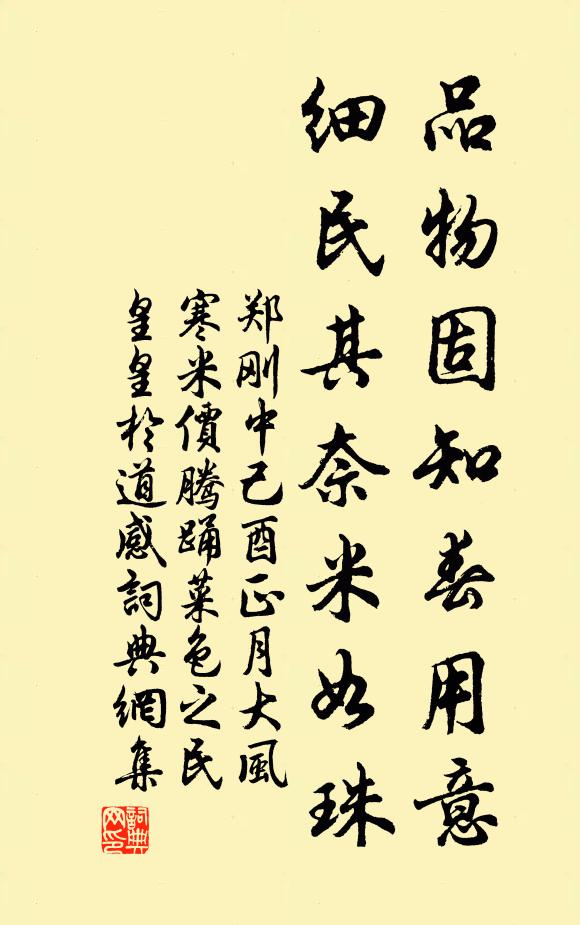 品物固知春用意
细民其奈米如珠
郑刚中己酉正月大風
寒米價腾踊菜色之民
皇皇於道感詞典網集
詞典
网印